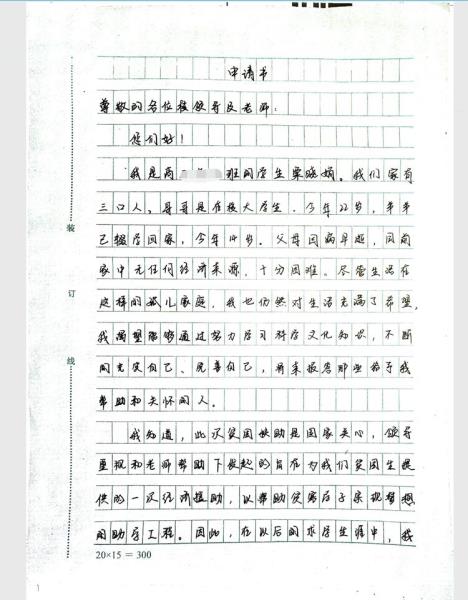 申请书
尊敬的各位校领导及老师：
您们好！
我是高 班的学生栗晓娟。我们家有
三口人，哥哥是在校大学生，今年22岁，弟弟
已辍学回家，今年14岁。父母因病早逝，因而
家中无任何经济来源，十分困难。尽管生活在
这样的孤儿家庭，我也仍然对生活充满了希望，
我渴望能够通过努力学习科学文化知识，不断
的充实自己、完善自己，将来报答那些给予我
帮助和关怀的人。
我知道，此次贫困扶助是国家关心，领导
重视和老师帮助下发起的旨在为我们贫困生提
供的一次经济援助，以帮助贫寒学子实现梦想
的助学工程。因此，在以后的求学生涯中，我
20×15 = 300
装
订
线
1